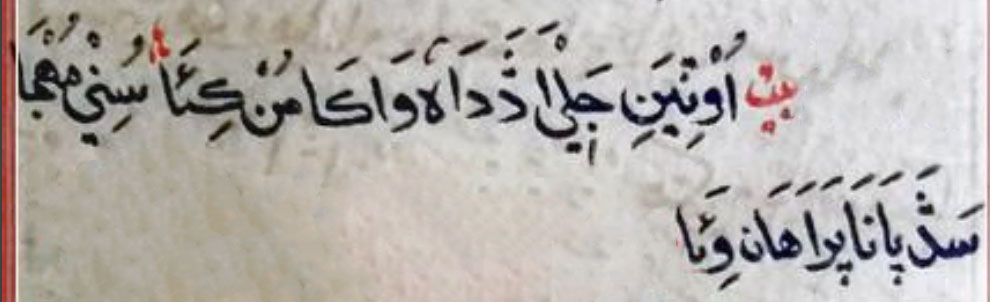 بيت اُوْتِيَنِ جَلِيْ اَ ذَّدَاهَ وَاكَا مُنْ كِئَا سُنِيْ مُهْجَا
سَڎَ پَانَا پَرَاهَان وِئَا